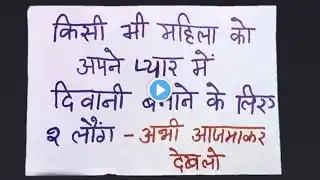 किसी भी महिला को
अपने प्यार में
दिवानी बनाने के लिए
२ लौंग - अभी आजमाकर
देखलो